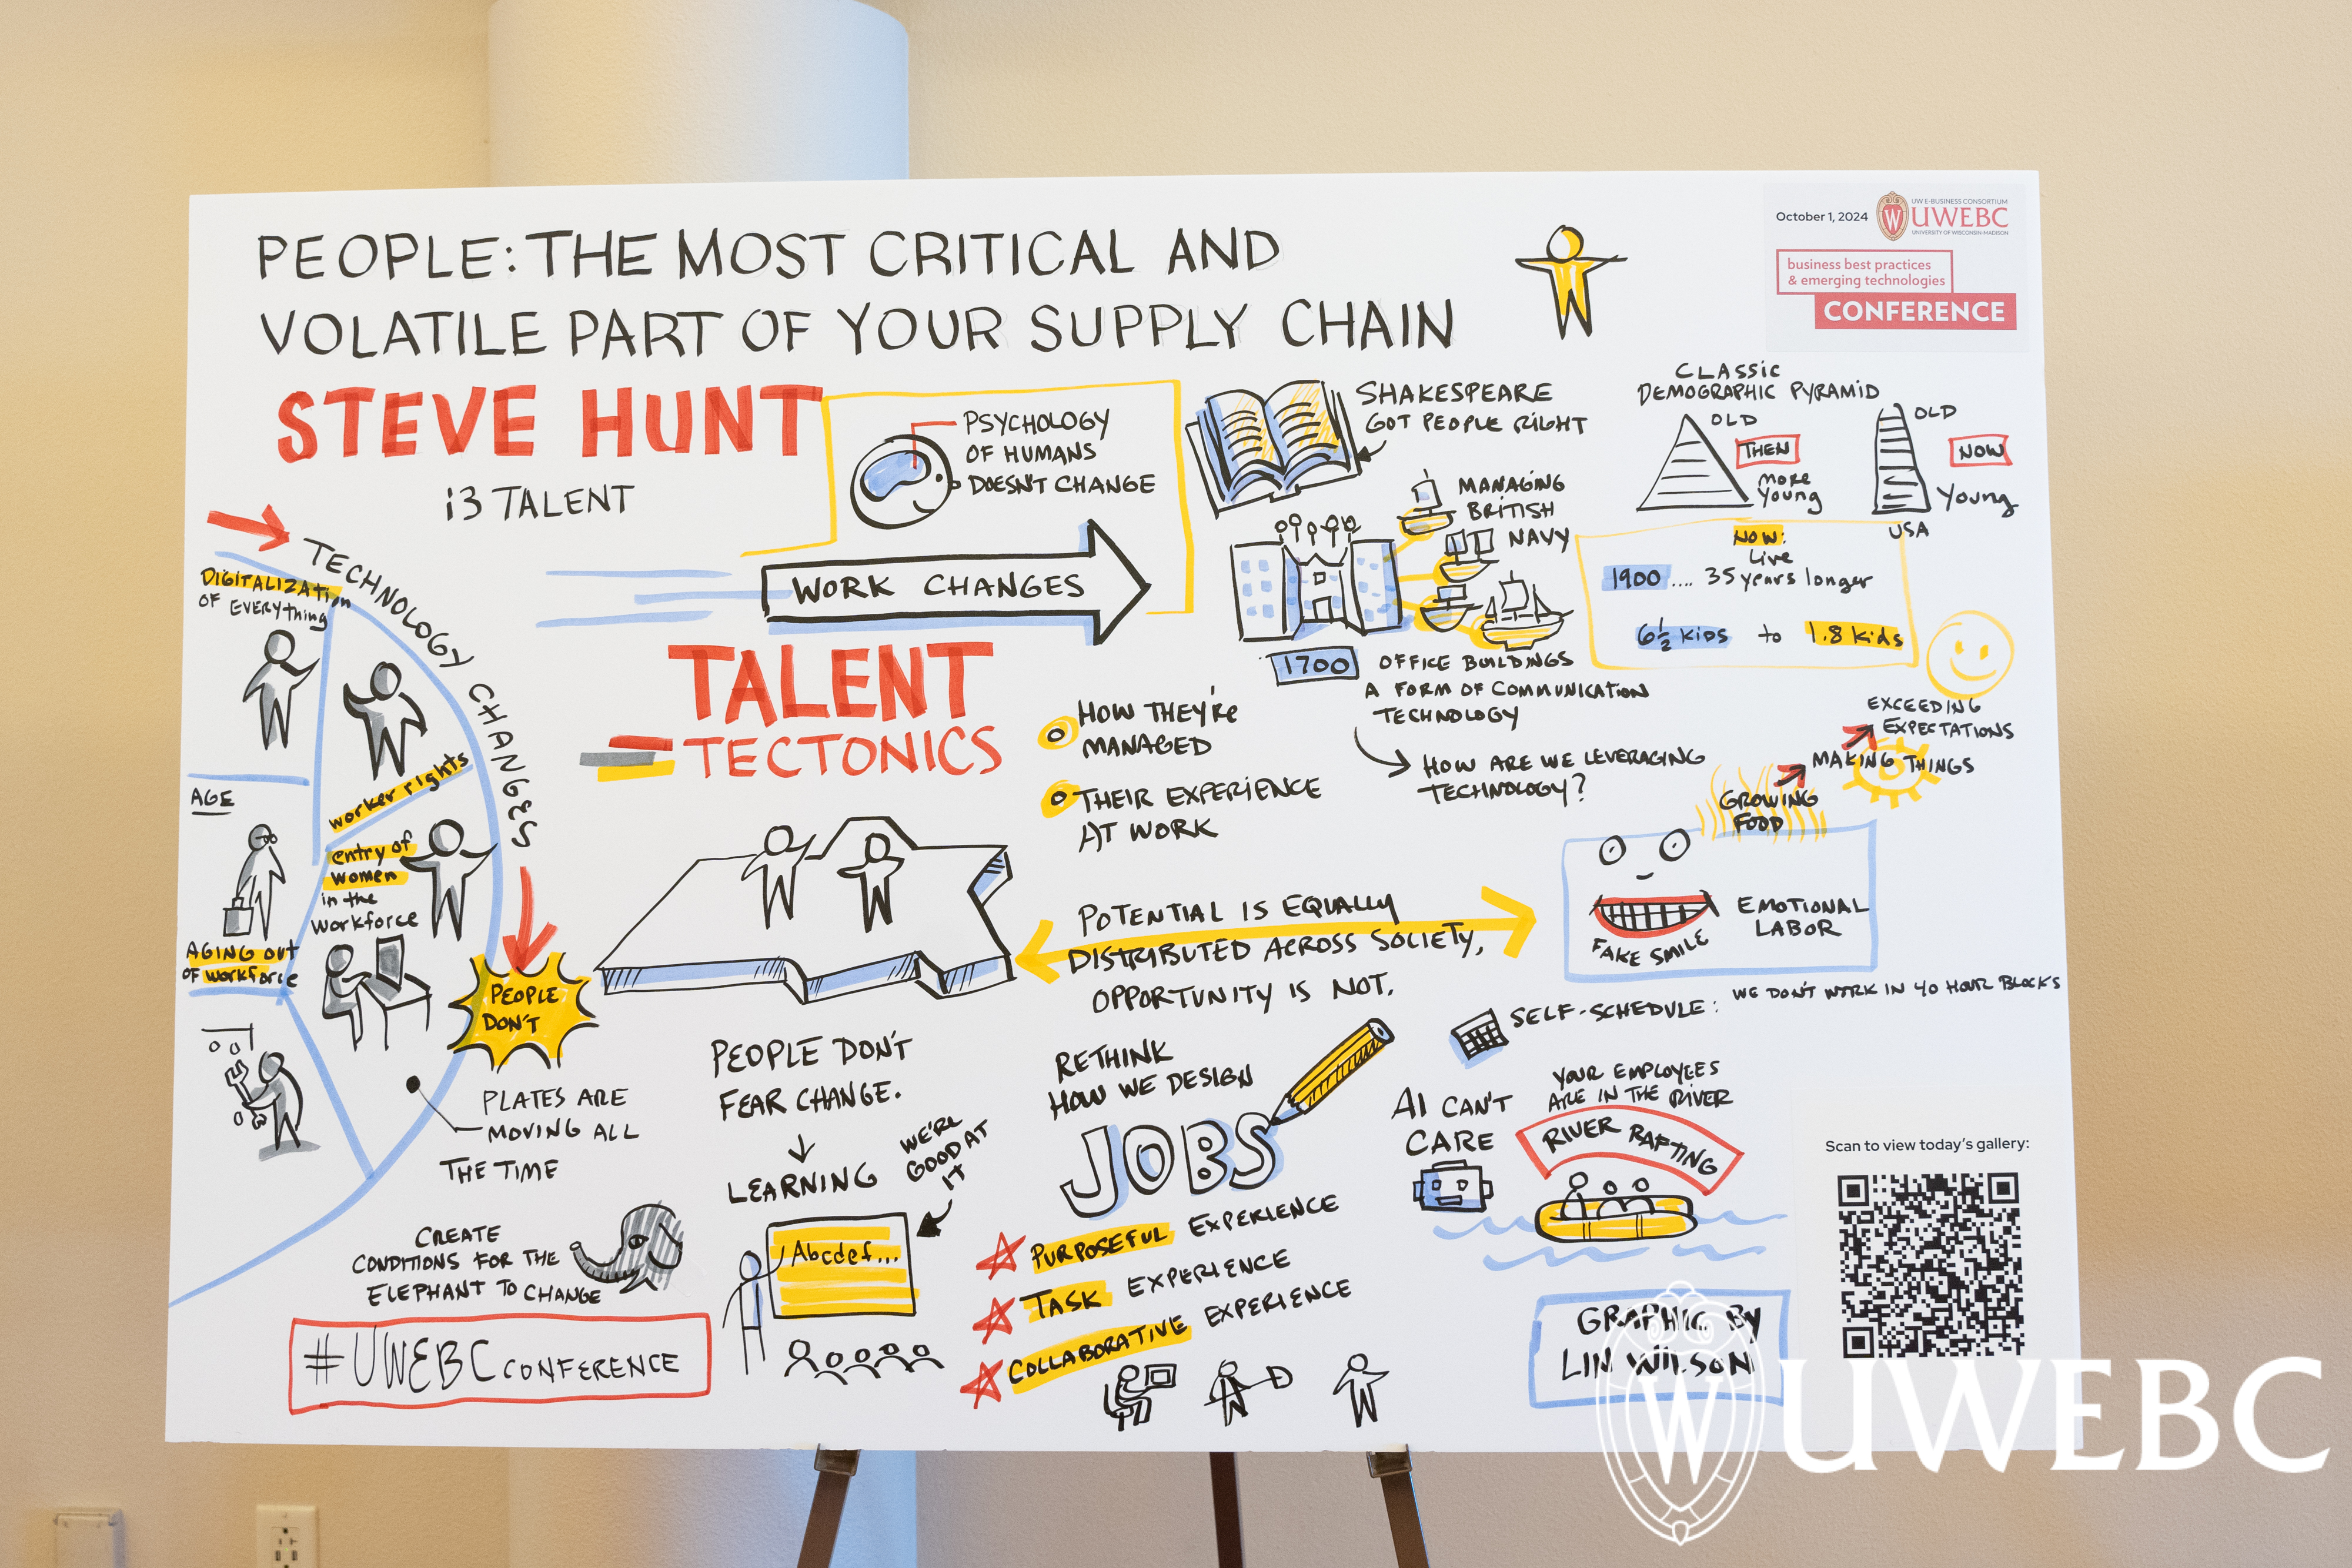 PEOPLE: THE MOST CRITICAL AND
VOLATILE PART OF YOUR SUPPLY CHAIN
STEVE HUNT
i3 TALENT
October 1, 2024
UW E-BUSINESS CONSORTIUM
UWEBC
UNIVERSITY OF WISCONSIN-MADISON
business best practices
& emerging technologies
CONFERENCE
PSYCHOLOGY
OF HUMANS
DOESN'T CHANGE
WORK CHANGES
SHAKESPEARE
GOT PEOPLE RIGHT
MANAGING
BRITISH
NAVY
1700
OFFICE BUILDINGS
A FORM OF COMMUNICATION
TECHNOLOGY
HOW ARE WE LEVERAGING
TECHNOLOGY?
CLASSIC
DEMOGRAPHIC PYRAMID
OLD
THEN
MORE
YOUNG
OLD
NOW
Young
USA
NOW:
Live
1900 .... 35 years longer
6½ KIDS to 1.8 kids
EXCEEDING
EXPECTATIONS
MAKING THINGS
GROWING
FOOD
FAKE SMILE
EMOTIONAL
LABOR
TECHNOLOGY CHANGES
DIGITALIZATION
OF EVERYthing
worker rights
AGE
entry of
women
in the
workforce
AGING OUT
OF workforce
PEOPLE
DON'T
PLATES ARE
MOVING ALL
THE TIME
TALENT
TECTONICS
HOW THEY'RE
MANAGED
THEIR EXPERIENCE
AT WORK
POTENTIAL IS EQUALLY
DISTRIBUTED ACROSS SOCIETY,
OPPORTUNITY IS NOT.
PEOPLE DON'T
FEAR CHANGE.
LEARNING
WE'RE
GOOD AT
IT
Abcdef...
CREATE
CONDITIONS FOR THE
ELEPHANT TO CHANGE
#UWEBC CONFERENCE
RETHINK
HOW WE DESIGN
JOBS
PURPOSEFUL EXPERIENCE
TASK EXPERIENCE
COLLABORATIVE EXPERIENCE
SELF-SCHEDULE: WE DON'T WORK IN 40 HOUR BLOCKS
AI CAN'T
CARE
YOUR EMPLOYEES
ARE IN THE RIVER
RIVER RAFTING
Scan to view today's gallery:
GRAPHIC BY
LIN WILSON
W UWEBC